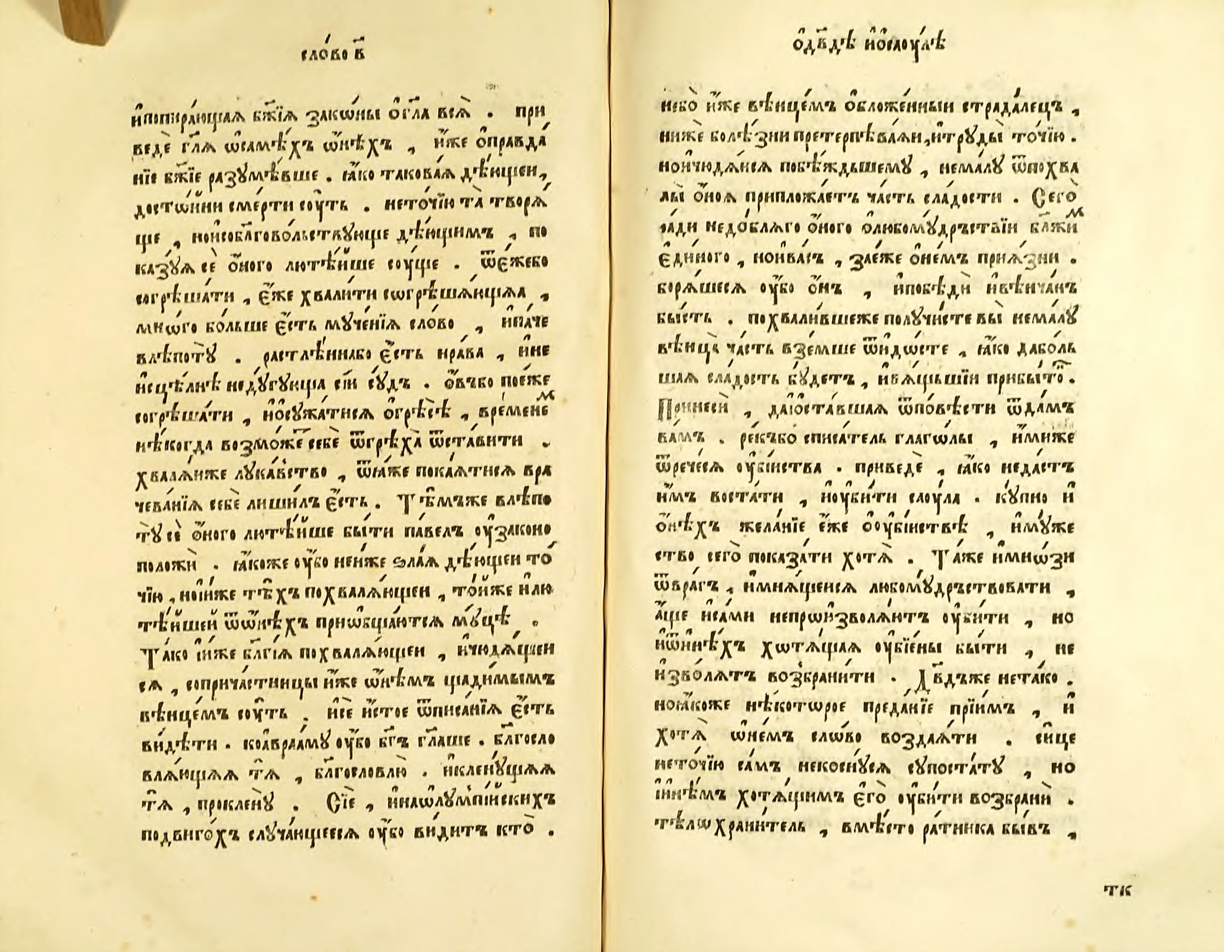 сло́во в҃
и҆попира́ющаꙗ бж҃їѧ зако́ны ѻ҆гл҃а всѧ̀ . при
ведѐ гл҃ѧ ѡ҆са́мѣхъ ѡ҆нѣ́хъ , и҆́же ѻ҆правда́
нїе бж҃їе разꙋмѣ́вше . ꙗ҆́ко такова́ѧ дѣ́ющеи ,
досто́йни сме́рти сꙋ́ть . нето́чїю та̀ творѧ́
ще , но и҆собл҃говольствꙋюще дѣ́ющимъ , по
казꙋ́ѧ сѐ ѻ҆́ного лютѣ́йше сꙋще . ѿе́жебо
согрѣша́ти , є҆́же хвали́ти согрѣша́ющаѧ ,
мно́го бо́льше є҆́сть мꙋче́нїѧ сло́во , и҆па́че
влѣ́потꙋ . растлѣ́ннабо є҆́сть нра́ва , и҆не
и҆сцѣ́лнѣ недꙋ́гꙋюща сїѝ сꙋ́дъ . ѻ҆́въбо по́еже
согрѣша́ти , и҆ѡ҆сꙋжа́тисѧ ѻ҆грѣсѣ̀ , вре́менемъ
нѣ́когда возмо́же себѐ ѿгрѣха̀ ѿста́вити .
хвалѧ́иже лꙋка́вство , ѿѧ́же покаѧ́тисѧ вра
чева́нїѧ себѐ лиши́лъ є҆́сть . Тѣ́мъже влѣ́по
тꙋ сѐ ѻ҆́ного лютѣ́йше бы́ти па́велъ оу҆зако́но
положѝ . ꙗ҆́коже оу҆́бо неи҆́же ѕла́ѧ дѣ́ющеи то́
чїю , но и҆и҆́же тѣ́хъ похвалѧ́ющеи , то́йже и҆лю
тѣ́йшей ѿѡ҆нѣ́хъ приѡбща́ютсѧ мꙋ́цѣ .
Та́ко и҆и҆́же бл҃гі́ѧ похвалѧ́ющеи , и҆чюдѧ́щеи
сѧ , соприча́стницы и҆́же ѡ҆нѣ́мъ щади́мымъ
вѣнце́мъ сꙋ́ть . и҆сѐ и҆́стое ѿписа́нїѧ є҆́сть
ви́дѣти . коа҆враа́мꙋ оу҆́бо бг҃ъ гл҃аше . бл҃госло
влѧ́ющаѧ тѧ̀ , бл҃гословлю̀ . и҆кленꙋ́щаѧ
тѧ̀ , проклене́ꙋ . Сїе , и҆наѡ҆лꙋмпі́йскихъ
подви́гохъ слꙋча́ющеесѧ оу҆́бо ви́дитъ кто̀ .
ѻ҆дв҃дѣ и҆ѻ҆саꙋ́лѣ
не́бо и҆́же вѣнце́мъ ѻ҆бложе́нныи страда́лецъ ,
ниже болѣ́зни претерпѣва́ѧи , и҆трꙋды̀ то́чїю .
но и҆чюдѧ́исѧ побѣ́ждьшемꙋ , нема́лꙋ ѿпохва
лы̀ ѻ҆́ноѧ припложа́етъ ча́сть сла́дости . Сего̀
ра́ди недо́бляго ѻ҆́ного ѻ҆любомꙋ́дрьствїи блажи́мъ
є҆ди́ного , но и҆ва́съ , зае́же ѻ҆не́мъ прїѧ́зни .
борѧ́шесѧ оу҆́бо ѻ҆́нъ , и҆побѣдѝ и҆вѣнча́нъ
бы́сть . похвали́вшеже полꙋчи́сте вы̀ нема́лꙋ
вѣнца̀ ча́сть взе́мше ѿи́досте , ꙗ҆́ко дабо́ль
шаѧ сла́дость бꙋ́детъ , и҆вѧ́щьшїи прибы́токъ .
Принесѝ , даѡ҆ста́вшаѧ ѿпо́вѣсти ѿда́мъ
ва́мъ . ре́къбо списа́тель глаго́лы , и҆́миже
ѿрече́сѧ оу҆бі́йства . приведѐ , ꙗ҆́ко неда́стъ
и҆̀мъ воста́ти , и҆оу҆би́ти саꙋ́ла . кꙋ́пно и҆
ѻ҆нѣ́хъ жела́нїе є҆́же ѻ҆оу҆бі́йствѣ , и҆мꙋ́же
ство сего̀ показа́ти хотѧ̀ . Та́же и҆мно́зи
ѿвра́гъ , и҆мнѧ́щеисѧ любомꙋ́дрьствовати ,
а҆́ще и҆са́ми непроизво́лѧтъ оу҆би́ти , но
и҆ѿи҆нѣ́хъ хотѧ́щаѧ оу҆бїе́ны бы́ти , не
и҆зво́лѧтъ возбрани́ти . Дв҃дъже нета́ко .
но ꙗ҆́коже нѣ́которое преда́нїе прїи́мъ , и҆
хотѧ̀ ѡ҆не́мъ сло́во возда́ѧти . си́це
нето́чїю са́мъ некоснꙋ́сѧ сꙋпоста́тꙋ , но
и҆и҆нѣ́мъ хотѧ́щимъ є҆го̀ оу҆би́ти возбранѝ .
тѣлохрани́тель , вмѣ́сто ра́тника бы́въ ,
тк